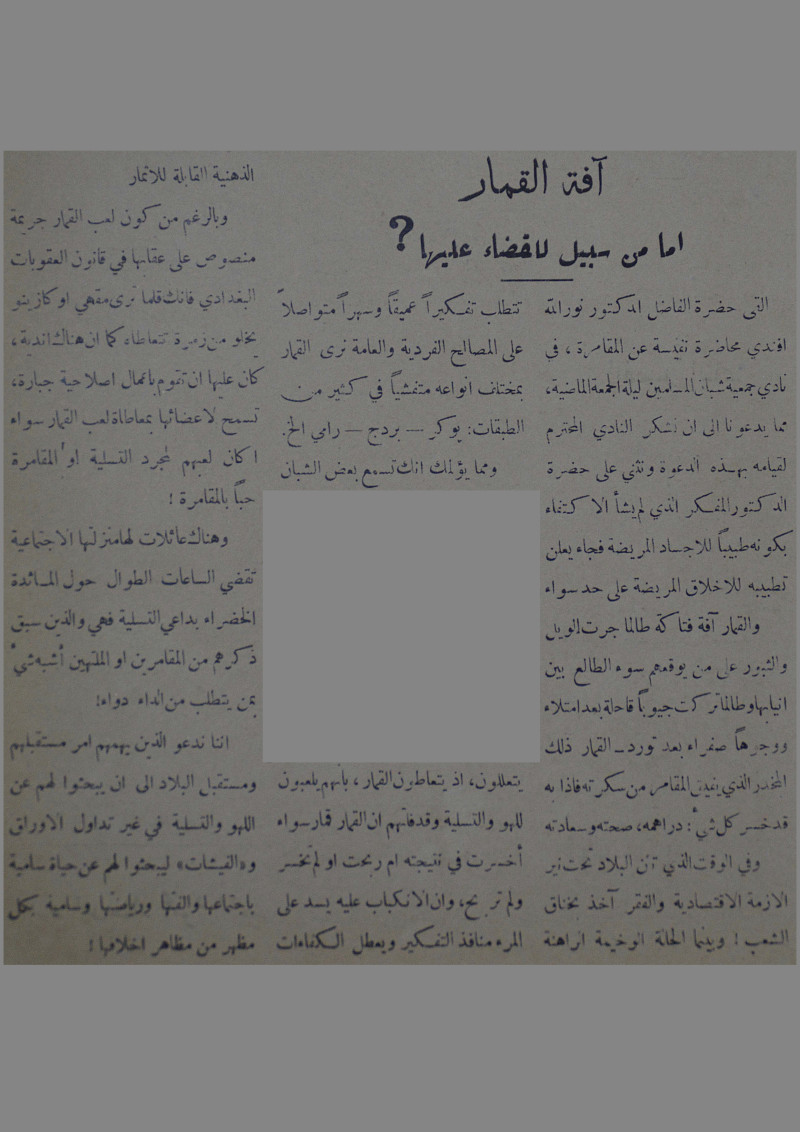 آفة القمار
اما من سبيل للقضاء عليها ؟
القى حضرة الفاضل الدكتور نورالله
افندي محاضرة نفيسة عن المقامرة ، في
نادي جمعية شبان المسلمين ليلة الجمعة الماضية،
مما يدعونا الى ان نشكر النادي المحترم
لقيامه بهذه الدعوة ونثني على حضرة
الدكتور المفكر الذي لم يشأ الاكتفاء
بكونه طبيباً للاجساد المريضة فجاء يعلن
تطبيبه للاخلاق المريضة على حد سواء
والقمار آفة فتاكة طالما جرت الويل
والثبور على من يوقعهم سوء الطالع بين
انيابها وطالما تركت جيوباً قاحلة بعد امتلاء
ووجوهاً صفراء بعد تورد ــ القمار ذلك
المخدر الذي يفيق المقامر من سكرته فاذا به
قد خسر كل شيء : دراهمه، صحته وسعادته
وفي الوقت الذي تئن البلاد تحت نير
الازمة الاقتصادية والفقر آخذ بخناق
الشعب ! وبينما الحالة الوخيمة الراهنة
تتطلب تفكيراً عميقاً وسهراً متواصلاً
على المصالح الفردية والعامة نرى القمار
بمختلف انواعه متفشياً في كثير من
الطبقات: بوكر — بردج — رامي الخ.
ومما يؤلمك انك تسمع بعض الشبان
يتعللون، اذ يتعاطون القمار ، بأنهم يلعبون
للهو والتسلية وقد فاتهم ان القمار قمار سواء
أخسرت في نتيجته ام ربحت او لم تخسر
ولم تربح، وان الانكباب عليه يسد على
المرء منافذ التفكير ويعطل الكفاءات
الذهنية القابلة للاثمار
وبالرغم من كون لعب القمار جريمة
منصوص على عقابها في قانون العقوبات
البغدادي فانك قلما ترى مقهى او كازينو
يخلو من زمرة تتعاطاه كما ان هناك اندية ،
كان عليها ان تقوم باعمال اصلاحية جبارة،
تسمح لاعضائها بمعاطاة لعب القمار سواء
اكان لعبهم لمجرد التسلية او المقامرة
حباً بالمقامرة !
وهناك عائلات لها منزلتها الاجتماعية
تقضي الساعات الطوال حول المائدة
الخضراء بداعي التسلية فهي والذين سبق
ذكرهم من المقامرين او الملتهين أشبه شيء
بمن يتطلب من الداء دواء!
اننا ندعو الذين يهمهم امر مستقبلهم
ومستقبل البلاد الى ان يبحثوا لهم عن
اللهو والتسلية في غير تداول الاوراق
و«الفيشات» ليبحثوا لهم عن حياة سامية
باجتماعها والفتها ورياضتها وسامية بكل
مظهر من مظاهر اخلاقها !